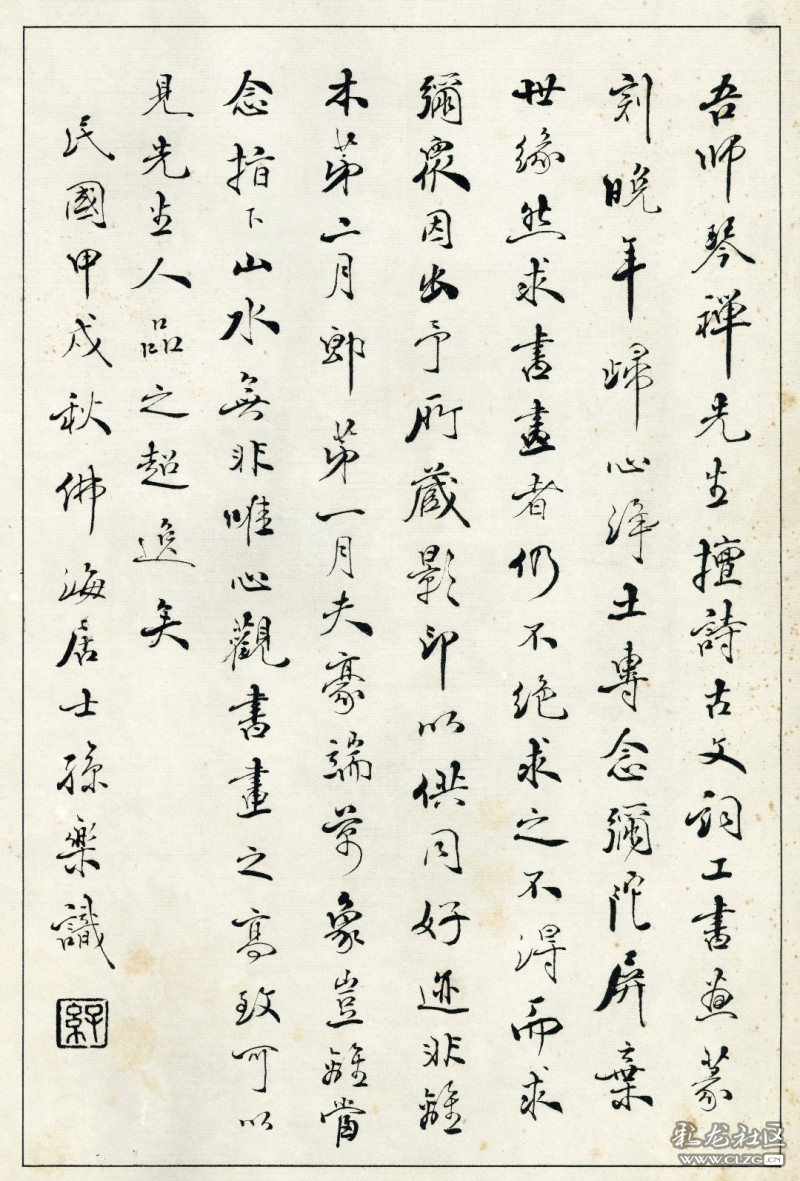 吾師琴禅先生擅詩古文詞工書画篆
刻晚年歸心淨土專念彌陀屏棄
世緣然求書畫者仍不绝求之不得而求
彌衆因出予所藏影印以供同好迹非離
木第二月郎第一月夫豪端萬象豈離當
念指下山水無非唯心觀書畫之高致可以
見先生人品之超逸矣
民國甲戌秋佛海居士孫樂識
彩龙社区
WWW.CLZG.CN